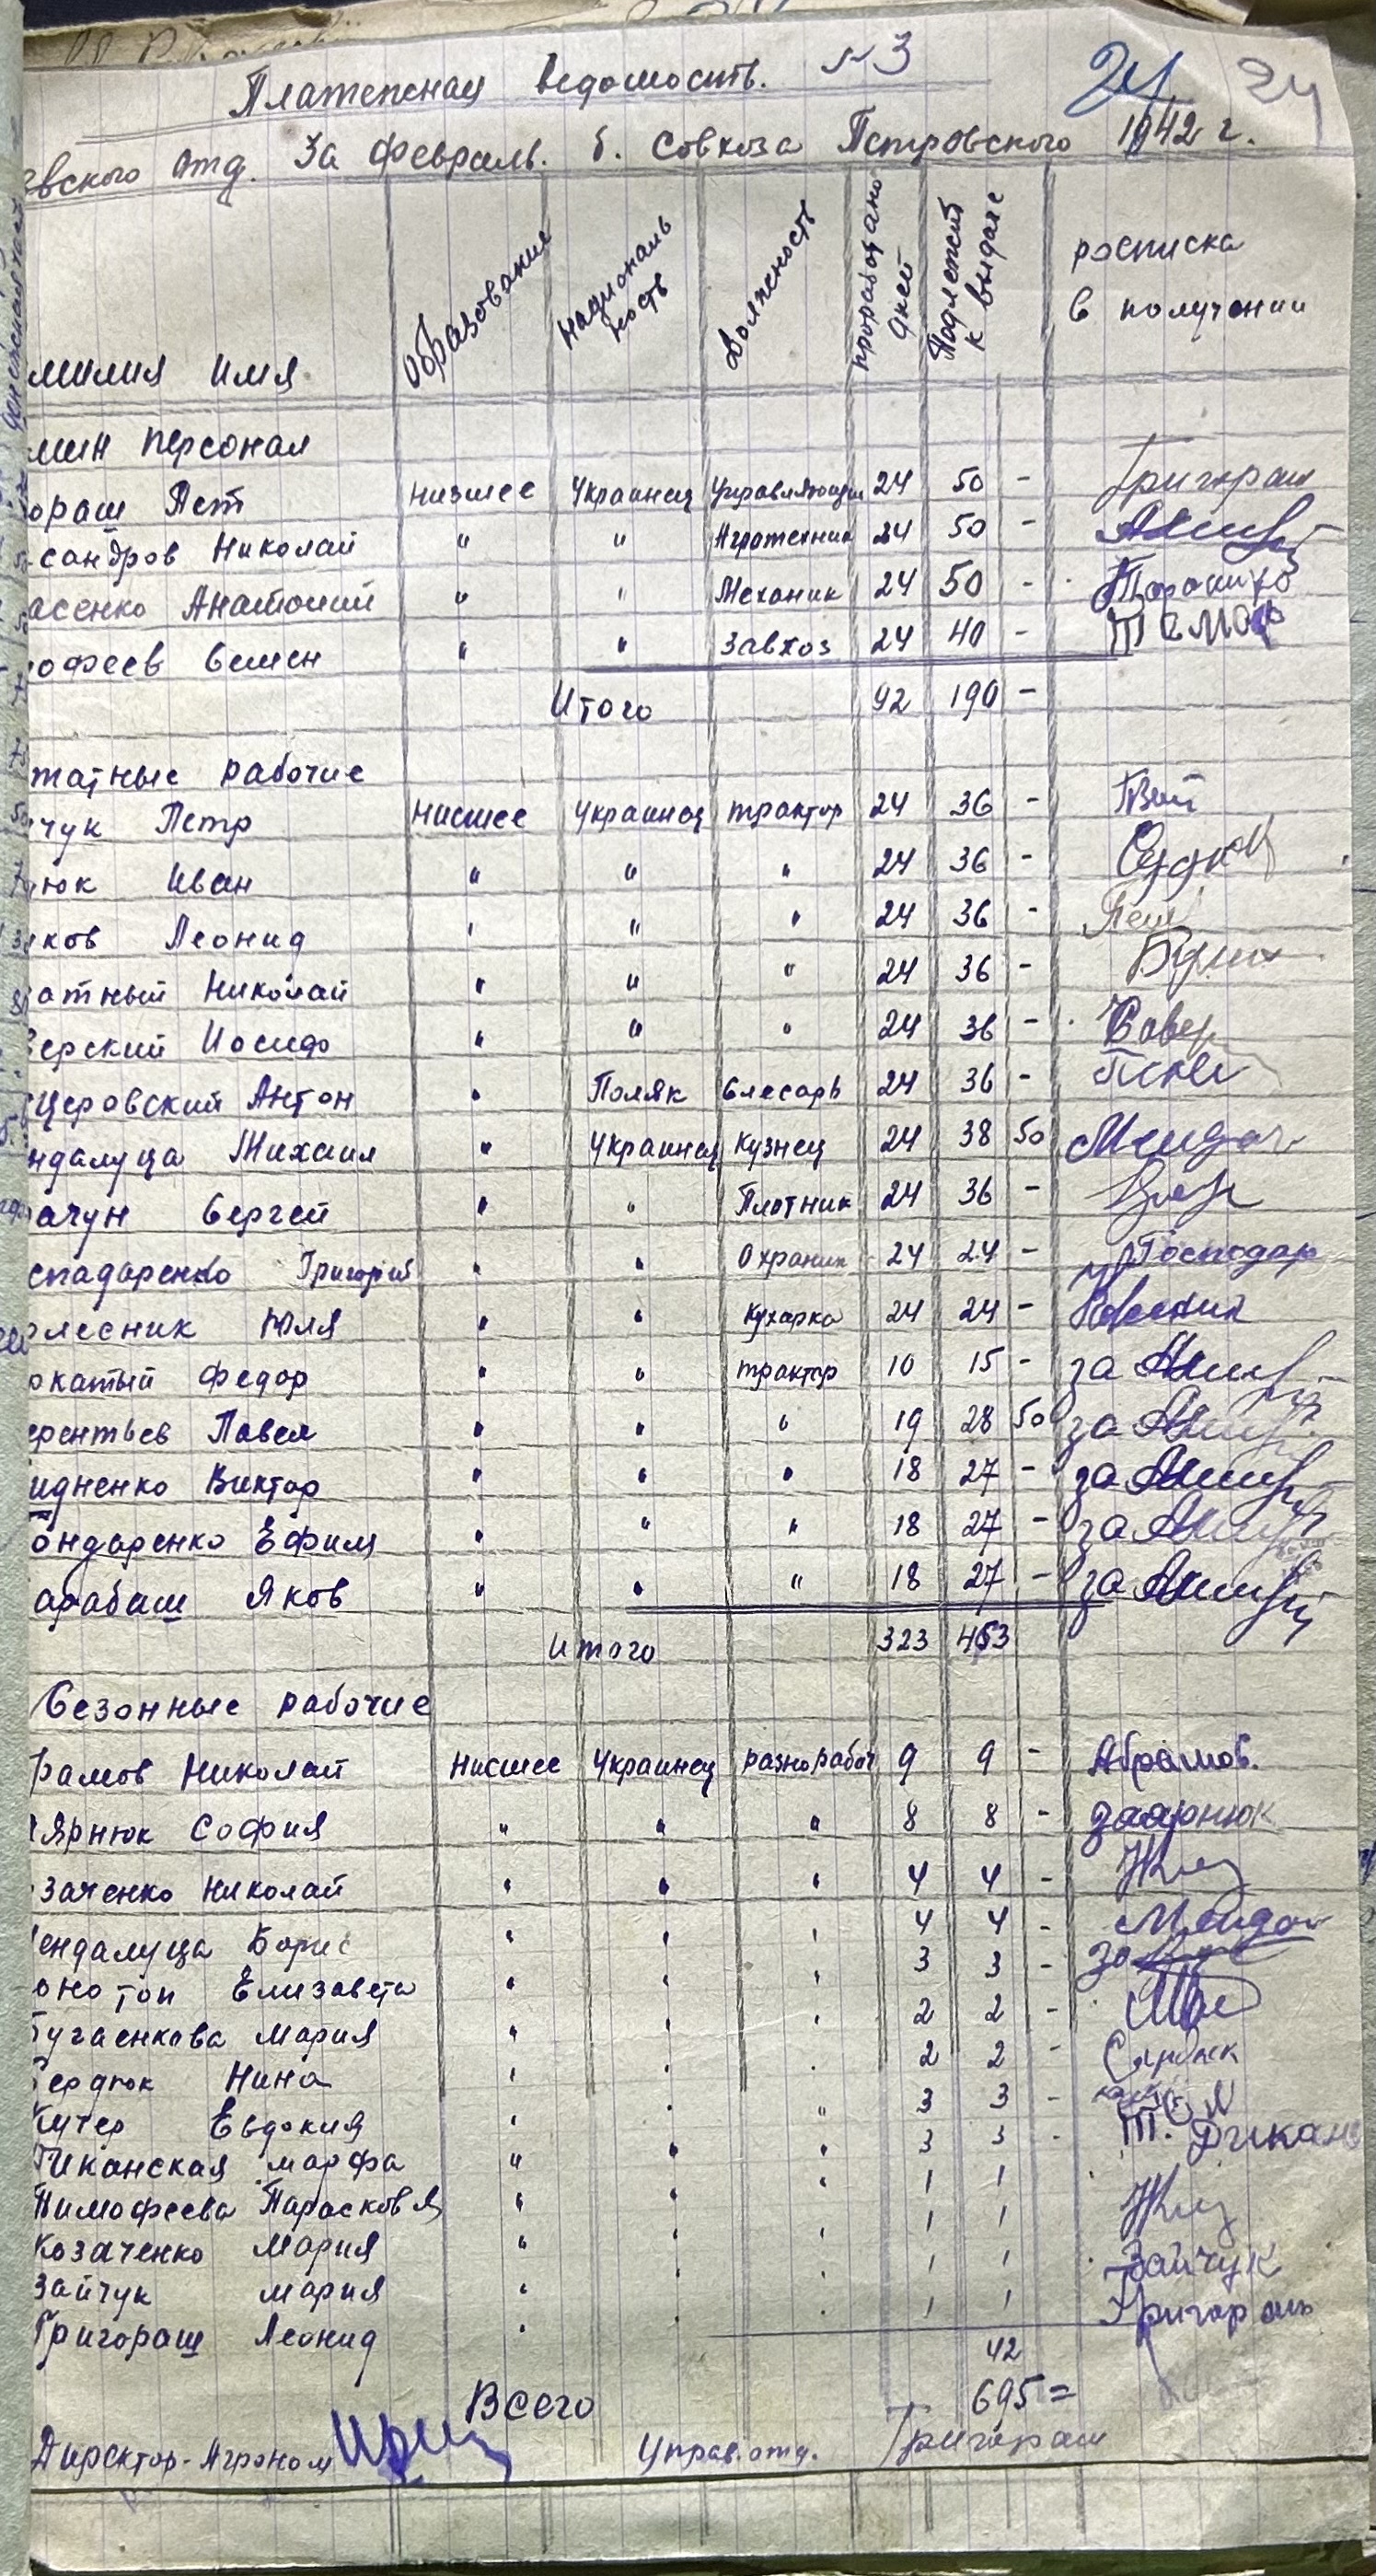 Платежная ведомость. №3
24 24
евского отд. За февраль. б. Совхоза Петровского 1942 г.
милия имя. Образование Националь ность Должность проработано дней Подлежит к выдаче росписка в получении
мин персонал
ораш Пет низшее Украинец Управляющий 24 50 - Григораш
сандров Николай " " Агротехник 24 50 -
асенко Анатолий " " Механик 24 50 -
офеев Семен " " Завхоз 24 40 -
Итого 92 190 -
татные рабочие
чук Петр нисшее Украинец трактор 24 36 -
юк Иван " " " 24 36 -
ков Леонид " " " 24 36 -
атный Николай " " " 24 36 -
верский Иосиф " " " 24 36 -
церовский Антон " Поляк Слесарь 24 36 -
ндалуца Михаил " Украинец Кузнец 24 38 50
ачун Сергей " " Плотник 24 36 -
спадаренко Григорий " " Охраник 24 24 - Господар
олесник Юля " " Кухарка 24 24 -
окатый Федор " " трактор 10 15 - за
ерентьев Павел " " " 19 28 50 за
идненко Виктор " " " 18 27 - за
ондаренко Ефим " " " 18 27 - за
арабаш Яков " " " 18 27 - за
Итого 323 453
Сезонные рабочие
рамов Николай Нисшее Украинец разнорабоч 9 9 - Абрамов.
ярнюк София " " " 8 8 -
заченко Николай " " " 4 4 -
ендалуца Борис " " " 4 4 -
онотоп Елизавета " " " 3 3 - за
бугаенкова Мария " " " 2 2 -
Сердюк Нина " " " 2 2 - Сердюк
Кучер Евдокия " " " 3 3 -
Диканская марфа " " " 3 3 -
Тимофеева Парасковья " " " 1 1
Козаченко Мария " " " 1 1
Зайчук мария " " " 1 1 Зайчук
Григораш Леонид " " " 1 1 Григораш
42
Всего 695=
Директор-Агроном Управ. отд. Григораш